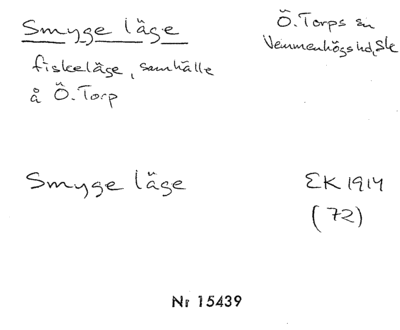 Smyge läge
Ö. Torps sn
Vemmenhögs hd, Sk
fiskeläge, samhälle
å Ö. Torp
Smyge läge
EK 1914
(72)
Nr 15439